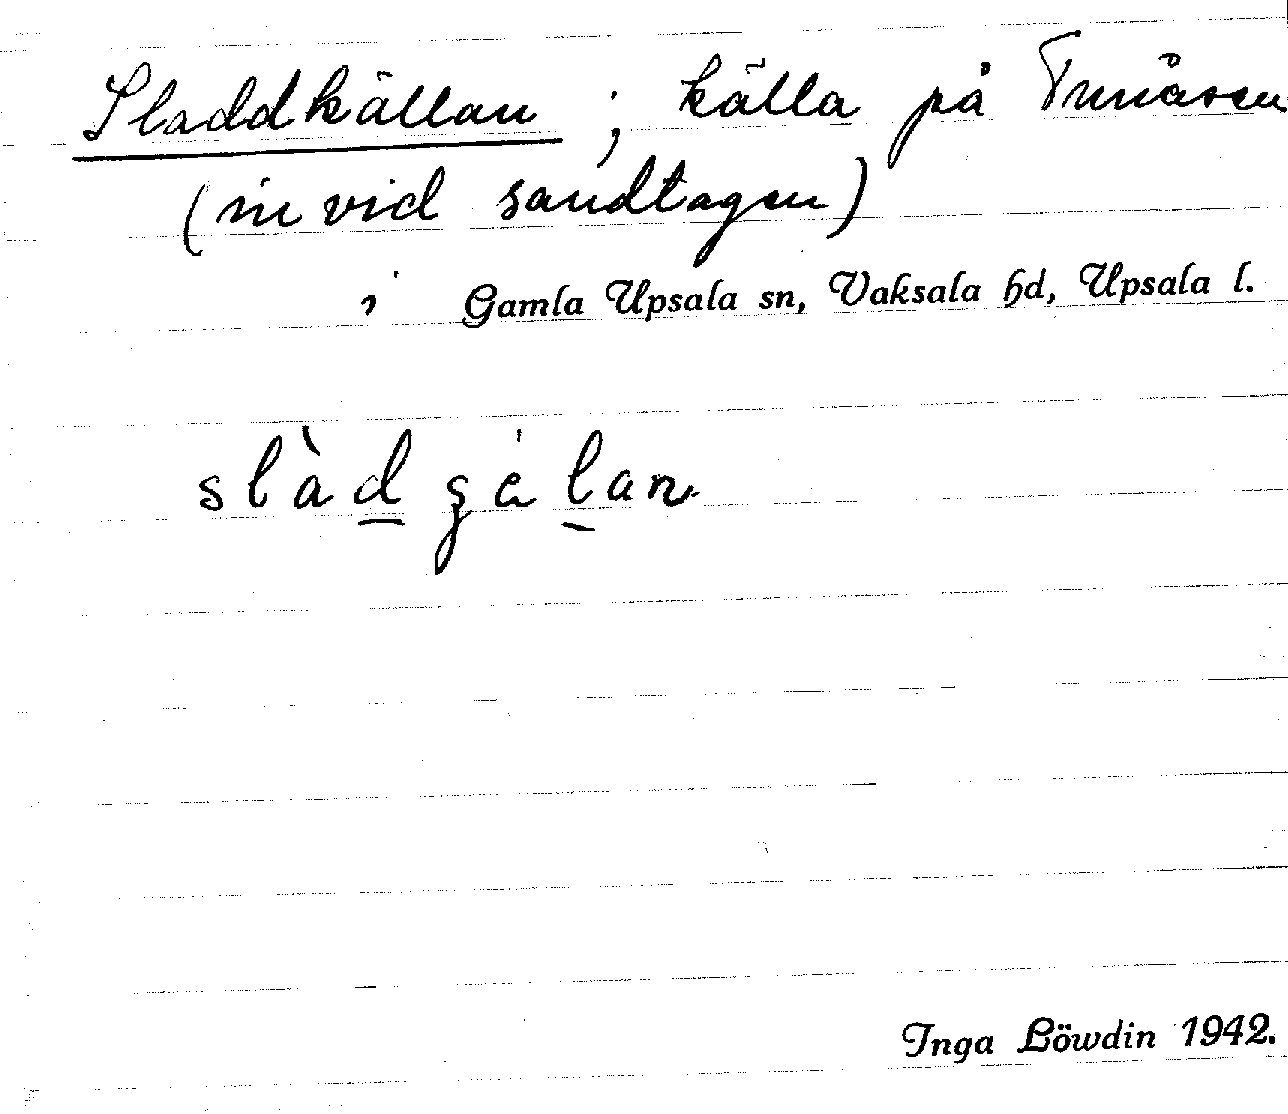 Sladdkällan ; källa på Tunåsen
(invid sandtagen)
i Gamla Upsala sn, Vaksala hd, Upsala l.
slàd ȿɛ́lan
Inga Löwdin 1942.